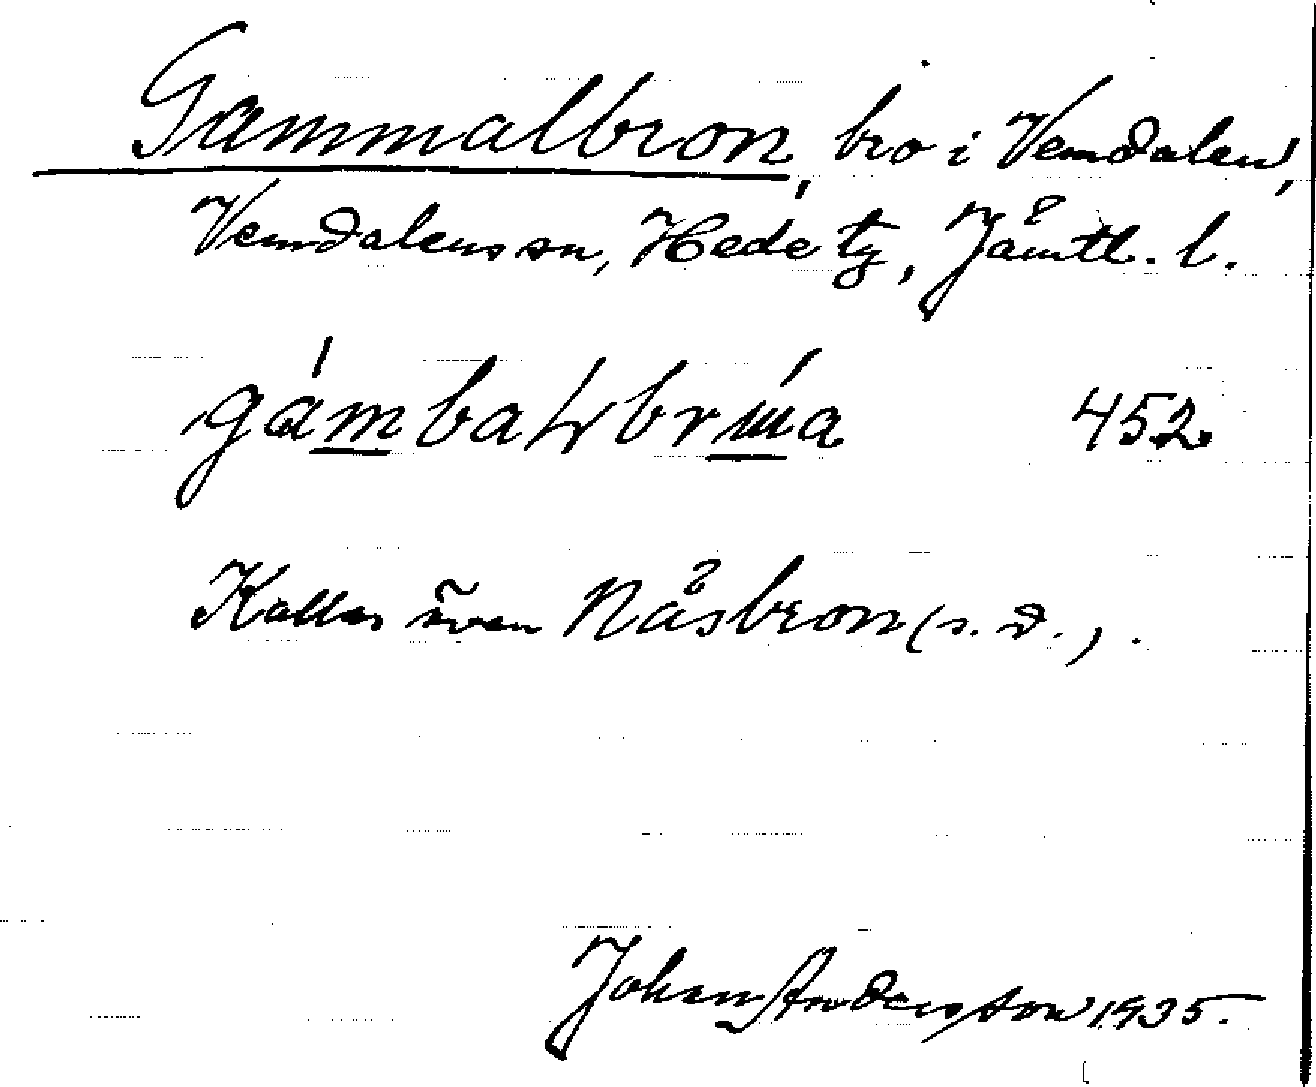 Gammalbron, bro i Vemdalen,
Vemdalens sn, Hede tg, Jämtl. l.
452
Kallas även Näsbron (s. d.).
Johan Andersson 1935.